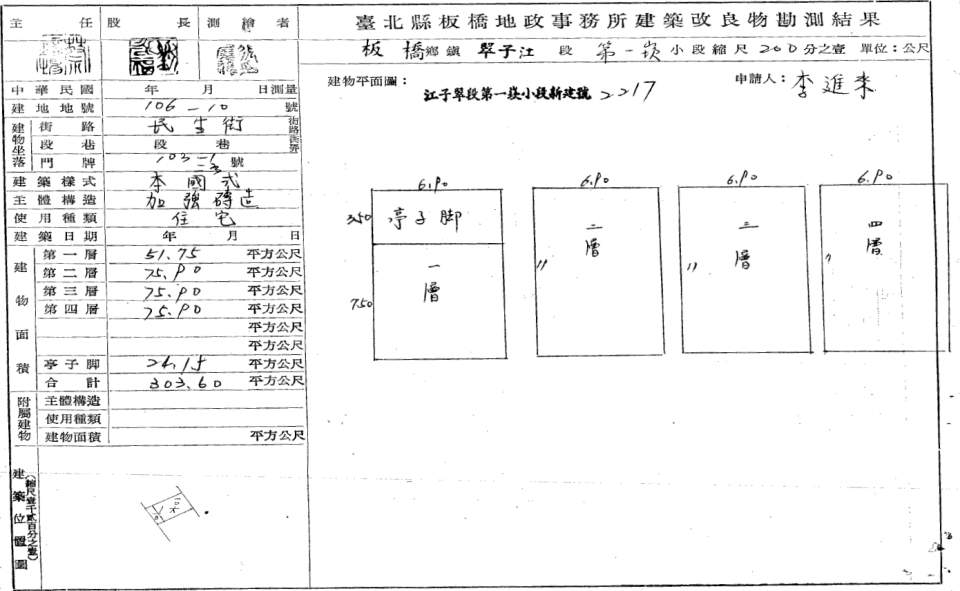 主任 股長 測繪者
臺北縣板橋地政事務所建築改良物勘測結果
板橋鄉鎮 翠子江 段 第一崁 小段 縮尺 200 分之壹 單位:公尺
中華民國 年 月 日測量
建地地號 106-10 號
建物坐落 街路 民生街 街路
段巷 段 巷
門牌 103-1 號
建築樣式 本國式
主體構造 加強磚造
使用種類 住宅
建築日期 年 月 日
建物面積
第一層 51.75 平方公尺
第二層 75.90 平方公尺
第三層 75.90 平方公尺
第四層 75.90 平方公尺
平方公尺
平方公尺
亭子脚 24.15 平方公尺
合計 303.60 平方公尺
附屬建物 主體構造
使用種類
建物面積 平方公尺
建築位置圖
(縮尺壹千貳百分之壹)
建物平面圖:
申請人:李進來
江子翠段第一崁小段新建號 2217
6.90 6.90 6.90 6.90
3.50 亭子脚
7.50 一層
〃 二層
〃 三層
〃 四層